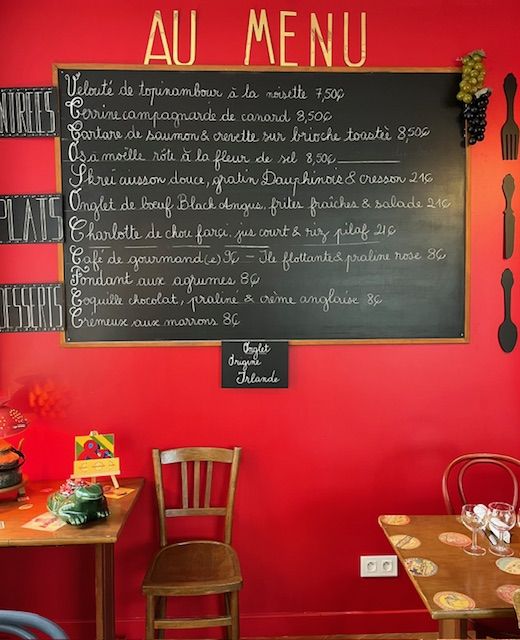 AU MENU
ENTRÉES
Velouté de topinambour à la noisette 7,50€
Terrine campagnarde de canard 8,50€
Tartare de saumon & crevette sur brioche toastée 8,50€
Os à moëlle rôti à la fleur de sel 8,50€
PLATS
Skrei aïsson douce, gratin Dauphinois & cresson 21€
Onglet de boeuf Black Angus, frites fraîches & salade 21€
Charlotte de chou farçi, jus court & riz pilaf 21€
DESSERTS
Café de gourmand(e) 9€ - Île flottante & praline rose 8€
Fondant aux agrumes 8€
Coquille chocolat, praliné & crème anglaise 8€
Crémeux aux marrons 8€
Onglet
Origine
Irlande